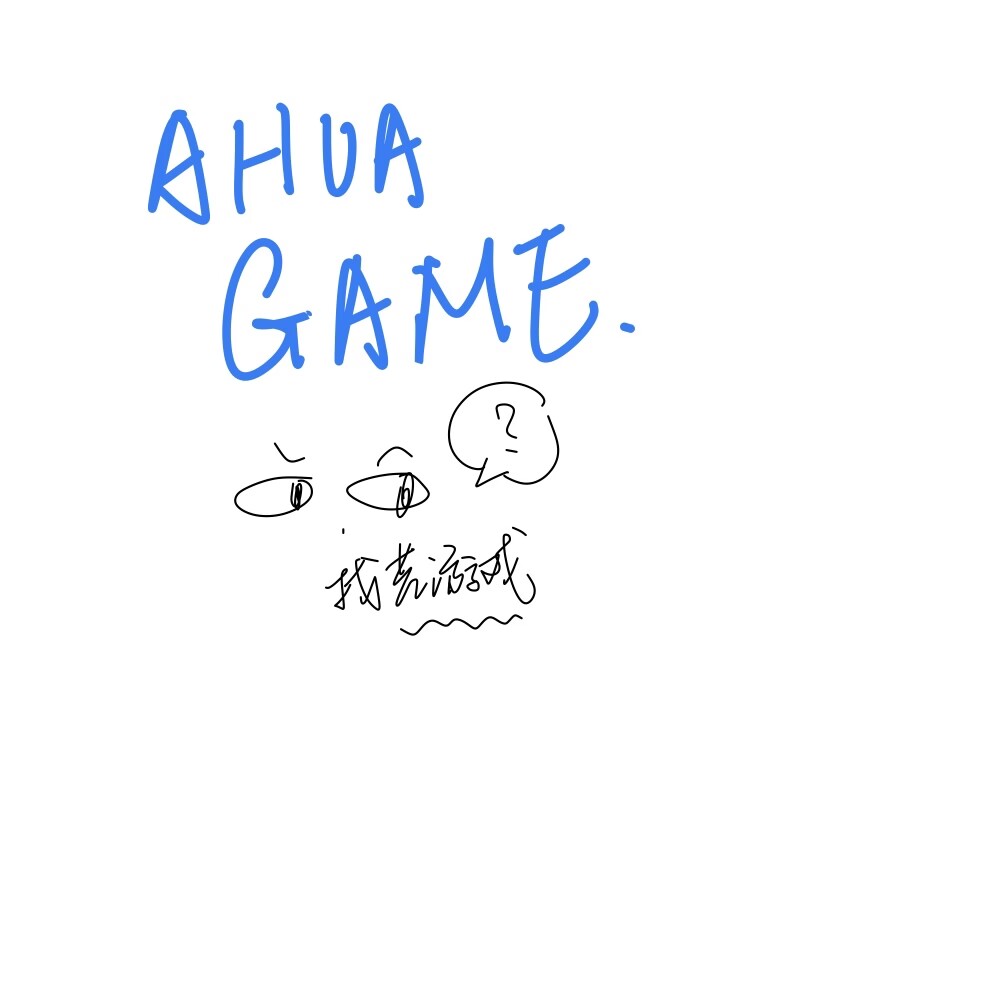 AHUA
GAME.
?
找茬游戏